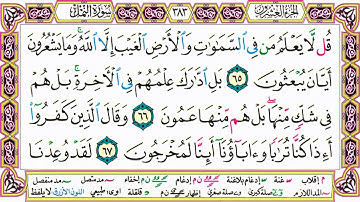 الجزء العشرون ٣٨٣ سورة النمل
قُل لَّا يَعْلَمُ مَن فِى ٱلسَّمَـٰوَٰتِ وَٱلْأَرْضِ ٱلْغَيْبَ إِلَّا ٱللَّهُ ۚ وَمَا يَشْعُرُونَ
أَيَّانَ يُبْعَثُونَ ٦٥ بَلِ ٱدَّٰرَكَ عِلْمُهُمْ فِى ٱلْـَٔاخِرَةِ ۚ بَلْ هُمْ
فِى شَكٍّ مِّنْهَا ۖ بَلْ هُم مِّنْهَا عَمُونَ ٦٦ وَقَالَ ٱلَّذِينَ كَفَرُوٓا۟
أَءِذَا كُنَّا تُرَٰبًا وَءَابَآؤُنَآ أَئِنَّا لَمُخْرَجُونَ ٦٧ لَقَدْ وُعِدْنَا